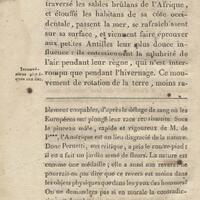 traversé les sables brûlans de l'Afrique,
et étouffé les habitans de sa côte occi-
dentale, passent la mer, se rafraîchissent
sur sa surface, et viennent faire éprouver
aux petites Antilles leur plus douce in-
fluence : ils entretiennent la salubrité de
l'air pendant leur règne, qui n'est inter-
rompu que pendant l'hivernage. Ce mou-
vement de rotation de la terre, moins ra-
blement coupables, d'après le déluge de sang où les
Européens ont plongé leur race
Sous la pinceau mâle, rapide et rigoureux de M. de
P***, l'Amérique est un lieu disgracié de la nature.
Dom Pernetti, son critique, a pris le contre-pied ;
il en a fait un jardin semé de fleurs. La nature est
comme une médaille ; elle a aussi son revers : ne
pourrait-on pas dire que ce revers est moins dans
les objets physiques que dans les yeux des hommes,
puisque même en si on morale la contradic-